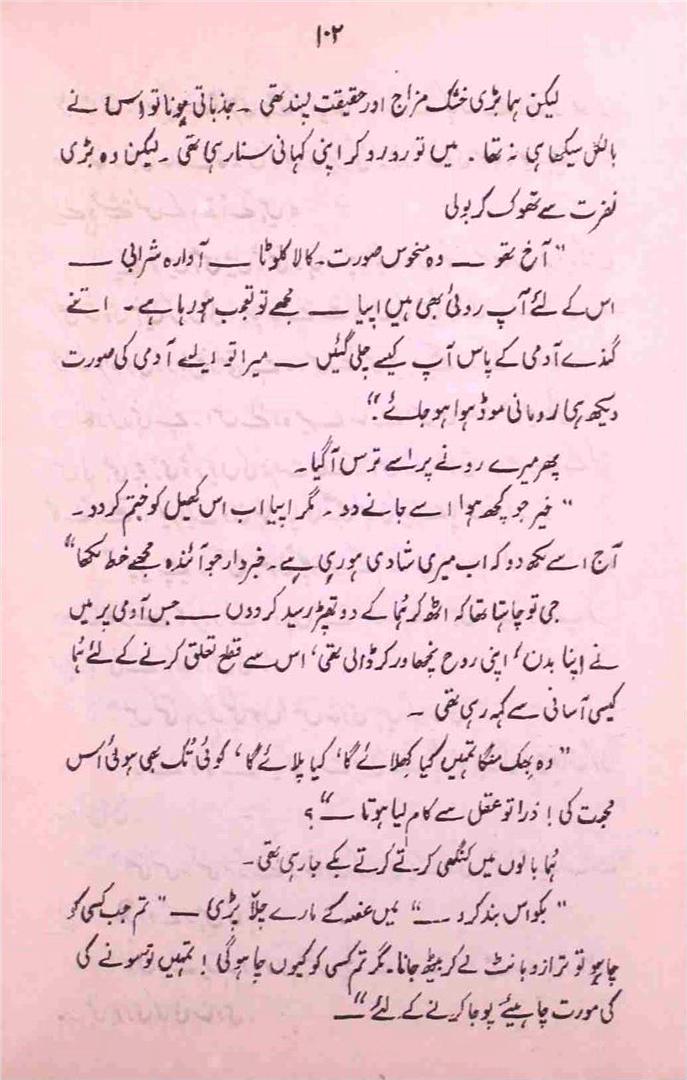 ۱۰۲
لیکن ہما بڑی خشک مزاج اور حقیقت پسند تھی ۔ جذباتی ہونا تو اس نے
بالکل سیکھا ہی نہ تھا ۔ میں تو رو رو کر اپنی کہانی سنا رہی تھی ۔ لیکن وہ بڑی
نفرت سے تھوک کر بولی
"آخ تھو ــــ وہ منحوس صورت ۔ کالا کلوٹا ــــ آوارہ شرابی ــــ
اس کے لئے آپ روئی بھی ہیں اپیا ــــ مجھے تو تعجب ہو رہا ہے ۔ اتنے
گندے آدمی کے پاس آپ کیسے چلی گئیں ــــ میرا تو ایسے آدمی کی صورت
دیکھ ہی رومانی موڈ ہوا ہو جائے ۔"
پھر میرے رونے پر اسے ترس آگیا ۔
"خیر جو کچھ ہوا اسے جانے دو ۔ مگر اپیا اب اس کھیل کو ختم کر دو ۔
آج اسے لکھ دو کہ اب میری شادی ہو رہی ہے ۔ خبردار جو آئندہ مجھے خط لکھا"
جی تو چاہتا تھا کہ اٹھ کر ہُما کے دو تھپڑ رسید کر دوں ــــ جس آدمی پر میں
نے اپنا بدن ، اپنی روح نچھاور کر ڈالی تھی ، اس سے قطع تعلق کرنے کے لئے ہُما
کیسی آسانی سے کہہ رہی تھی ۔
"وہ بھک منگا تمہیں کیا کھلائے گا ، کیا پلائے گا ، کوئی تُک بھی ہوئی اُس
محبت کی ! ذرا تو عقل سے کام لیا ہوتا ــــ" ؟
ہُما بالوں میں کنگھی کرتے کرتے بکے جا رہی تھی ۔
"بکواس بند کرو ــــ" میں غصہ کے مارے چلّا پڑی ــــ "تم جب کسی کو
چاہو تو ترازو بانٹ لے کر بیٹھ جانا ۔ مگر تم کسی کو کیوں چاہو گی ! تمہیں تو سونے کی
کی مورت چاہیئے پوجا کرنے کے لئے" ــــ